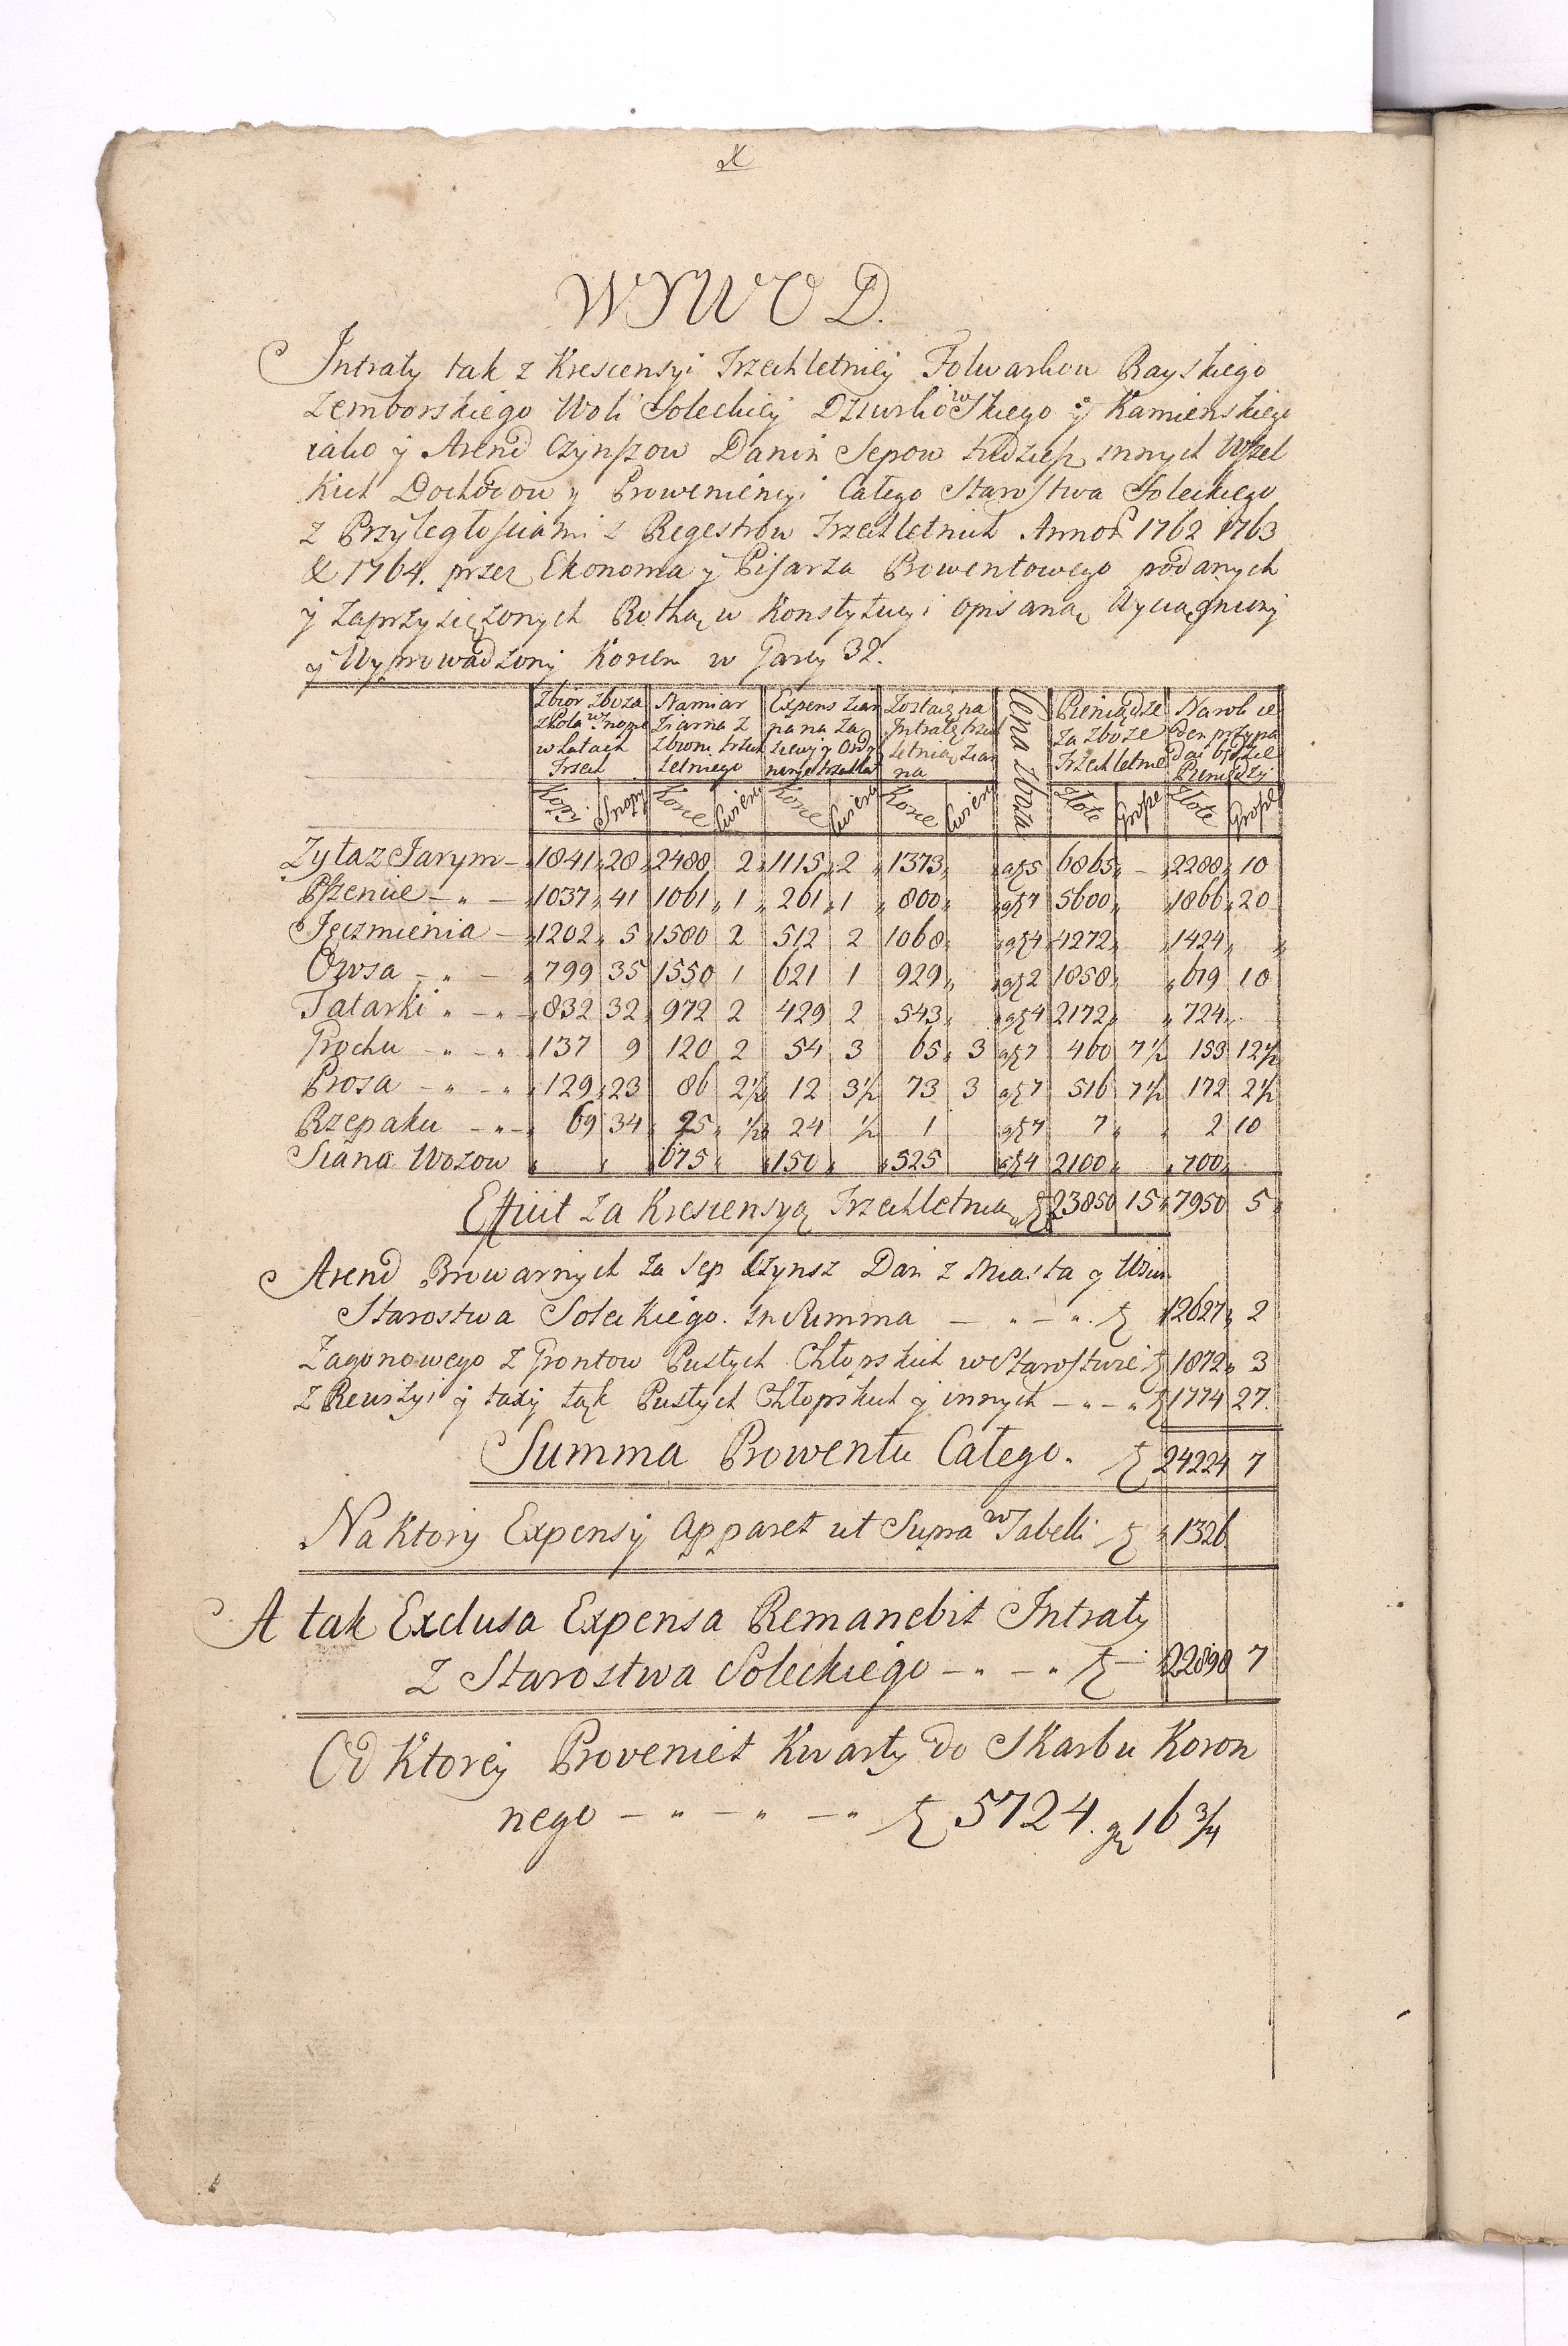 X
WYWOD.
Intraty tak z Krescensyi Trzechletniey Folwarkow Rayskiego
Zemborskiego Woli Soleckiey Dziurkowskiego y Kamienskiego
iako y Arend Czynszow Danin Sepow tudziesz innych Wszel
kich Dochodow y Prowenięncyi Całego Starostwa Soleckiego
z Przyległosciami z Regestrow Trzechletnich Annor 1762 1763
& 1764. przez Ekonoma y Pisarza Prowentowego podanych
y zaprzysiężonych Rothą w Konstytucyi opisaną Wyciągniony
y Wyprowadzony Korcem w Garcy 32.
Zbior Zboza z Pola w Snopie w Latach Trzech | Namiar Ziarna z Zbioru trzech Letniego | Expens Ziarna na Zasiewy y Ordynaryę trzechlet | Zostaię na Intratę trzech letnią Ziarna | Cena Zboza | Pieniądze za zboze Trzechletnie | Na rok ieden przypadac będzie Pieniędzy
Kopy | Snopy | Korce | Cwierci | Korce | Cwierci | Korce | Cwierci | Złote | Grosze | Złote | Grosze
Zyta z Jarym – 1841 28 2488 2 1115 2 1373 a ƶ 5 6865 – 2288 10
Pszenice – " – 1037 41 1061 1 261 1 800 a ƶ 7 5600 1866 20
Jęczmienia – 1202 5 1580 2 512 2 1068 a ƶ 4 4272 1424 "
Owsa – " – 799 35 1550 1 621 1 929 a ƶ 2 1858 619 10
Tatarki " – " – 832 32 972 2 429 2 543 a ƶ 4 2172 724
Grochu – " – " 137 9 120 2 54 3 65 3 a ƶ 7 460 7 1/2 153 12 1/2
Prosa – " – " 129 23 86 2 1/2 12 3 1/2 73 3 a ƶ 7 516 7 1/2 172 2 1/2
Rzepaku – " – 69 34 25 1/2 24 1/2 1 a ƶ 7 7 2 10
Siana Wozow 675 150 525 a ƶ 4 2100 700
Efficit za Krescensyą Trzechletnią ƶ 23850 15 7950 5
Arend Browarnych za Sep Czynsz Dan z Miasta y Wsiow
Starostwa Soleckiego. In Summa – " – " ƶ 12627 2
Zagonowego z Grontow Pustych Chłopskich w Starostwie ƶ 1872 3
z Rewizyi y taxy łąk Pustych Chłopskich y innych – " – " ƶ 1774 27.
Summa Prowentu Całego. ƶ 24224 7
Na Ktory Expensy apparet ut Supra w Tabelli ƶ 1326
A tak Exclusa Expensa Remanebit Intraty
z Starostwa Soleckiego – " – " ƶ – 22898 7
Od Ktorey Proveniet Kwarty do Skarbu Koron
nego – " – " – " ƶ 5724. gr 16 3/4